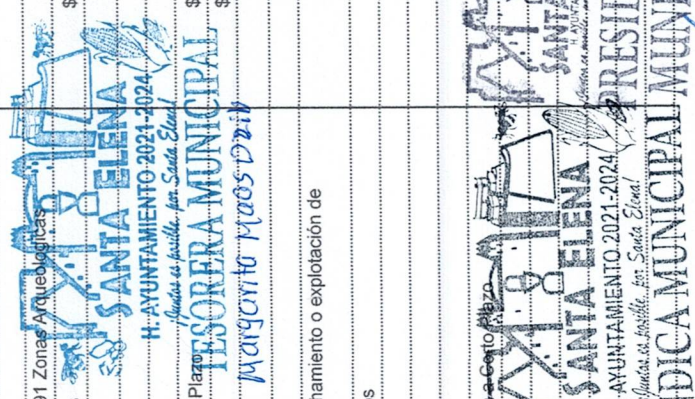 91 Zonas Arqueológicas
$
SANTA ELENA
H. AYUNTAMIENTO 2021-2024
¡Juntos es posible, por Santa Elena!
Plazo
$
TESORERA MUNICIPAL
$
Margarita Maos
hamiento o explotación de
s
a Corto Plazo
SANTA ELENA
AYUNTAMIENTO 2021-2024
Juntos es posible, por Santa Elena!
DICA MUNICIPAL
SANTA
H. AYUNT
PRESI
MUNI